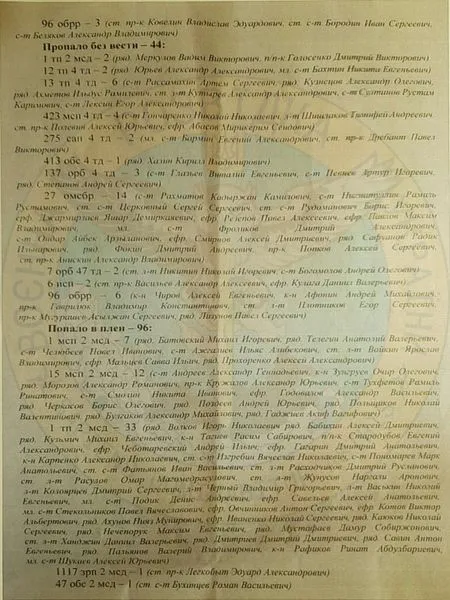 96 обрр – 3 (ст. пр-к Ковелин Владислав Эдуардович, ст. с-т Бородин Иван Сергеевич,
с-т Беляков Александр Владимирович)
Пропало без вести – 44:
1 тп 2 мсд – 2 (ряд. Меркулов Вадим Викторович, п/п-к Голосенко Дмитрий Викторович)
12 тп 4 тд – 2 (ряд. Юрьев Александр Александрович, мл. с-т Бахтин Никита Евгеньевич)
13 тп 4 тд – 6 (ряд. Россамахин Артем Сергеевич, ряд. Кузнецов Александр Олегович,
ряд. Ахметов Ильдус Рамилевич, ст. л-т Кутырев Александр Александрович, с-т Султанов Рустам
Каримович, с-т Лексин Егор Александрович)
423 мсп 4 тд – 4 (с-т Гончаренко Николай Николаевич, л-т Шишлаков Тимофей Андреевич,
ст. пр-к Полевин Алексей Юрьевич, ефр. Абасов Мирикерим Сеидович)
275 сап 4 тд – 2 (мл. с-т Бармин Евгений Александрович, ст. пр-к Дребант Павел
Викторович)
413 обс 4 тд – 1 (ряд. Хазин Кирилл Владимирович)
137 орб 4 тд – 3 (с-т Глазьев Виталий Евгеньевич, с-т Певнев Артур Игоревич,
ряд. Степанов Андрей Сергеевич)
27 омсбр – 14 (с-т Рахматов Кадыржан Камилович, с-т Нисматуллин Рамиль
Рустамович, ст. с-т Церковный Сергей Сергеевич, ст. с-т Рудоманович Борис Игоревич,
ефр. Джармырзаев Яшар Демиркаяевич, ефр. Репепов Павел Алексеевич, ефр. Павлов Максим
Владимирович, мл. с-т Фроликов Дмитрий Алексеевич,
с-т Ондар Айбек Арзыланович, ефр. Смирнов Алексей Дмитриевич, ряд. Сафуанов Радик
Ильнарович, ряд. Фокин Дмитрий Андреевич, пр-к Попков Алексей Сергеевич,
ст. пр-к Анискин Александр Владимирович)
7 орб 47 тд – 2 (ст. л-т Никитин Николай Игоревич, с-т Богомолов Андрей Олегович)
6 исп – 2 (пр-к Васильев Александр Алексеевич, ефр. Кулага Даниил Валерьевич)
96 обрр – 6 (к-н Чиров Алексей Евгеньевич, к-н Афонин Андрей Михайлович,
пр-к Гаврилюк Владимир Константинович, ст. л-т Плотников Егор Сергеевич,
пр-к Мугурашев Асылжан Сергеевич, ряд. Лизунов Павел Сергеевич)
Попало в плен – 96:
1 мсп 2 мсд – 7 (ряд. Батовский Михаил Игоревич, ряд. Телегин Анатолий Валерьевич,
с-т Челюбеев Павел Иванович, с-т Азжелиов Ильяс Аликович, ст. л-т Вайкин Ярослав
Владимирович, ефр. Мальцев Савва Ильич, ряд. Прохоренко Алексей Александрович)
15 мсп 2 мсд – 12 (с-т Андреев Александр Геннадьевич, к-н Зунгруев Очир Олегович,
ряд. Морозов Александр Романович, пр-к Кружалов Александр Юрьевич, с-т Тухфетов Рамиль
Ринатович, с-т Смолин Никита Иванович, ефр. Годовилов Александр Васильевич,
ряд. Черкасов Борис Олегович, ряд. Поздеев Андрей Юрьевич, ряд. Польщиков Николай
Валентинович, ряд. Булгаков Александр Михайлович, ряд. Гаджиев Акиф Вагифович)
1 тп 2 мсд – 33 (ряд. Волков Игорь Николаевич ряд. Бабихин Алексей Дмитриевич,
ряд. Кузьмич Михаил Евгеньевич, к-н Тагиев Расим Сабирович, п/п-к Стародубов Евгений
Александрович, ефр. Чеботаревский Андрей Ильич, ефр. Гагарин Дмитрий Анатольевич,
к-н Карпенко Александр Николаевич, ст. с-т Погребин Вячеслав Николаевич, с-т Пономарев Марк
Анатольевич, ст. с-т Фатьянов Иван Васильевич, ст. л-т Расходчиков Дмитрий Русланович,
ст. л-т Расулов Омар Магомедрасулович, ст. л-т Жунусов Наргали Аронович,
л-т Козомирцев Дмитрий Сергеевич, л-т Черный Владимир Григорьевич, л-т Васькин Николай
Евгеньевич, мл. с-т Подик Денис Андреевич, ефр. Савельев Алексей Анатольевич,
мл. с-т Стекольников Павел Вячеславович, ефр. Овчинников Антон Сергеевич, ефр. Котов Виктор
Альбертович, ряд. Ахунов Нияз Мунирович, ефр. Иваненко Николай Сергеевич, ряд. Каюков Николай
Сергеевич, ряд. Нечепорук Максим Евгеньевич, ряд. Мустафаев Дамур Собиржонович,
ст. л-т Ханджян Даниил Валерьевич, ряд. Дмитриев Дмитрий Дмитриевич, ряд. Савин Антон
Евгеньевич, ряд. Пальянов Валерий Владимирович, к-н Рафиков Ринат Абдулбариевич,
мл. с-т Щукаев Алексей Юрьевич)
1117 зрп 2 мсд – 1 (ст. пр-к Легкобыт Эдуард Александрович)
47 обс 2 мсд – 1 (ст. с-т Буханцев Роман Васильевич)